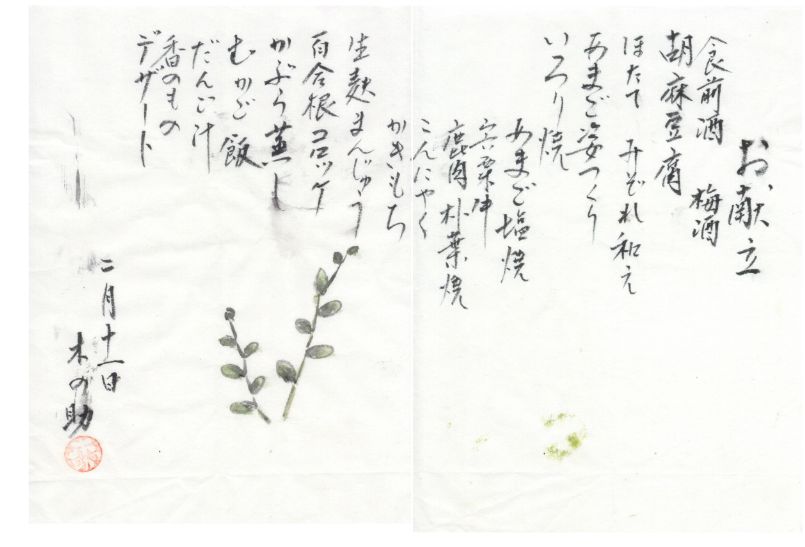 お献立
食前酒 梅酒
胡麻豆腐
ほたて みぞれ和え
あまご姿つくり
いろり焼
あまご塩焼
宍粟牛
鹿肉 朴葉焼
こんにゃく
かきもち
生麩まんじゅう
百合根コロッケ
かぶら蒸し
むかご飯
だんご汁
香のもの
デザート
二月十一日
木の助